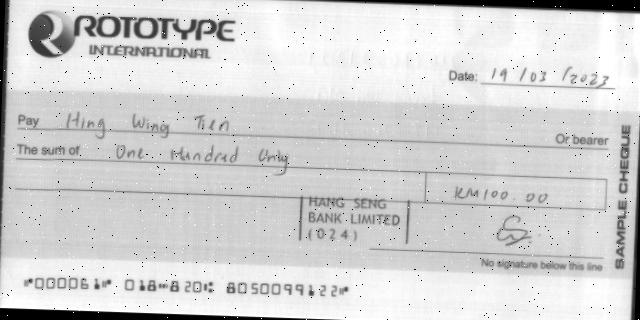 ROTOTYPE
INTERNATIONAL
Date: 19/03/2023
Pay Hing Wing Tien
Or bearer
The sum of One Hundred Only
RM100.00
HANG SENG
BANK LIMITED
(024)
No signature below this line
SAMPLE CHEQUE
⑈000061⑈ 018⑉820⑆ 8050099122⑈